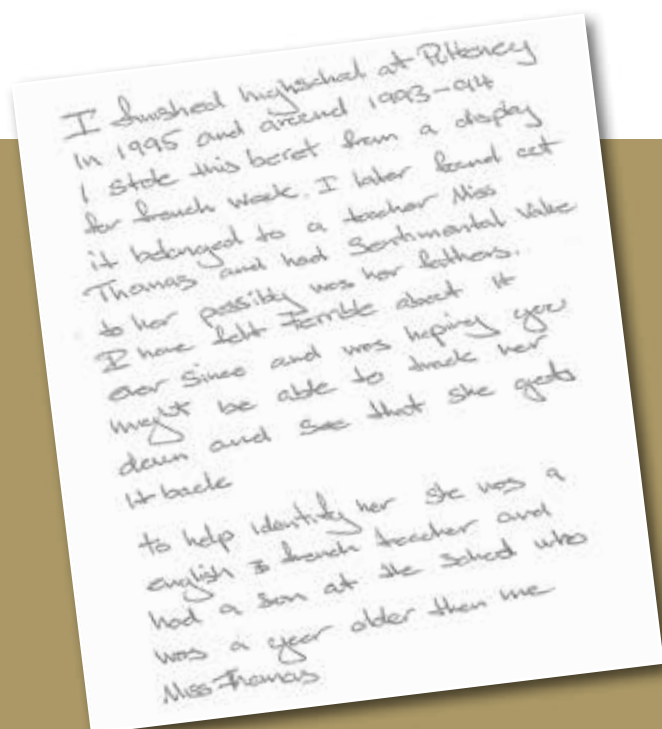 I finished highschool at Pulteney
in 1995 and around 1993-94
I stole this beret from a display
for french week. I later found out
it belonged to a teacher Miss
Thomas and had Sentimental Value
to her possibly was her fathers.
I have felt Terrible about it
ever since and was hoping you
might be able to track her
down and see that she gets
it back
to help identify her she was a
english & french teacher and
had a son at the school who
was a year older then me
Miss Thomas